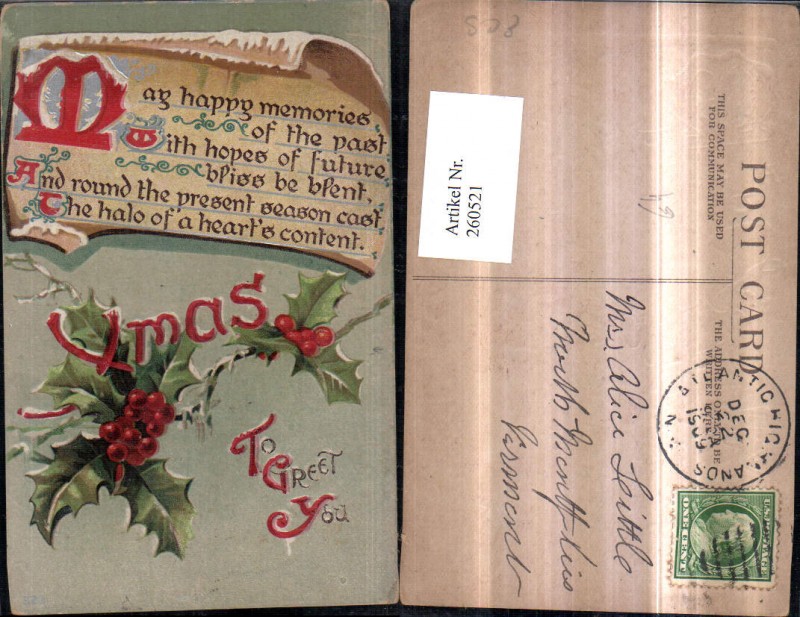 May happy memories
of the past
With hopes of future
bliss be blent,
And round the present season cast
The halo of a heart's content.
Xmas
To
Greet
You
Artikel Nr.
260521
POST CARD
THIS SPACE MAY BE USED
FOR COMMUNICATION
THE ADDRESS ONLY TO BE
WRITTEN HERE
Mrs Alice Little
North Montpelier
Vermont
ATLANTIC HIGHLANDS
DEC
22
N.J.
ONE CENT